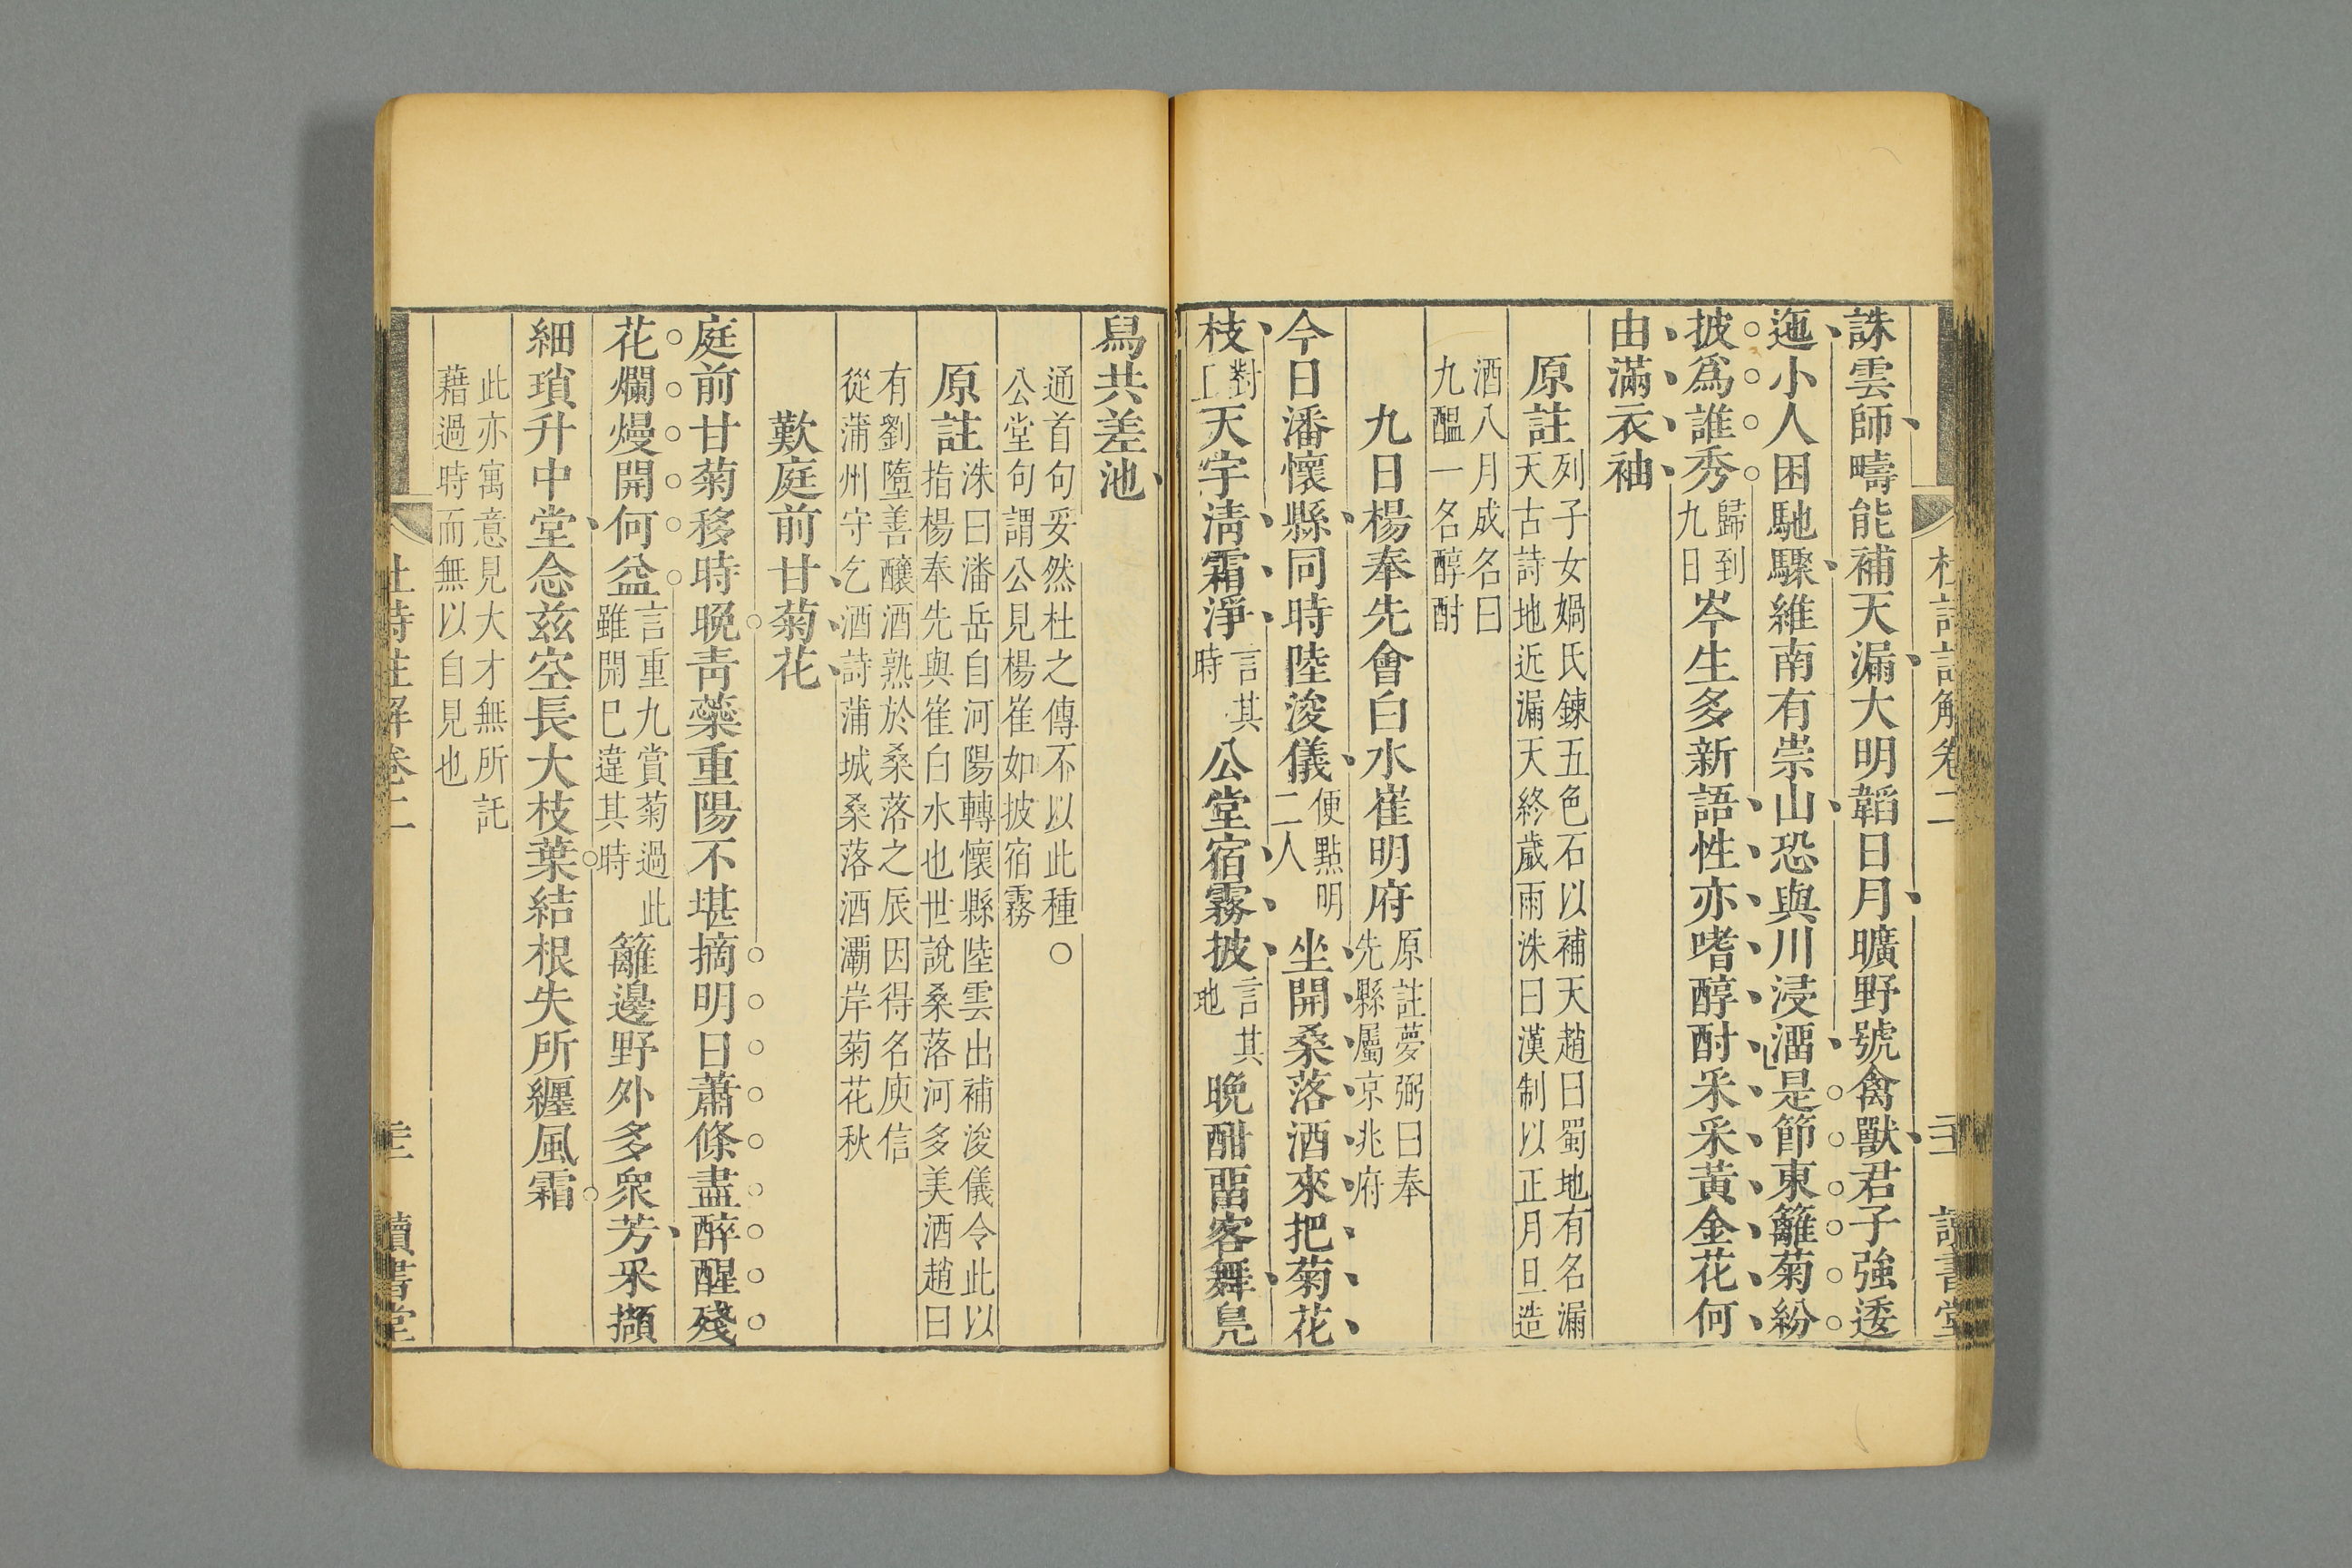 誅雲師疇能補天漏大明韜日月曠野號禽獸君子強逶
迤小人困馳驟維南有崇山恐與川浸溜是節東籬菊紛
披爲誰秀歸到九日岑生多新語性亦嗜醇酎采采黃金花何
由滿衣袖
原註列子女媧氏鍊五色石以補天趙曰蜀地有名漏
天古詩地近漏天終歲雨洙曰漢制以正月旦造
酒八月成名曰
九醞一名醇酎
九日楊奉先會白水崔明府原註夢弼曰奉
先縣屬京兆府
今日潘懷縣同時陸浚儀便點明二人坐開桑落酒來把菊花
枝對上天宇淸霜淨言其時公堂宿霧披言其地晚酣畱客舞鳧
舄共差池
通首句妥然杜之傳不以此種○
公堂句謂公見楊崔如披宿霧
原註洙曰潘岳自河陽轉懷縣陸雲出補浚儀令此以
指楊奉先與崔白水也世說桑落河多美酒趙曰
有劉墮善釀酒熟於桑落之辰因得名庾信
從蒲州守乞酒詩蒲城桑落酒灞岸菊花秋
歎庭前甘菊花
庭前甘菊移時晚靑蘂重陽不堪摘明日蕭條盡醉醒殘
花爛熳開何益言重九賞菊過此雖開已違其時籬邊野外多衆芳采擷
細瑣升中堂念茲空長大枝葉結根失所纏風霜
此亦寓意見大才無所託
藉過時而無以自見也
杜詩註解卷二
讀書堂